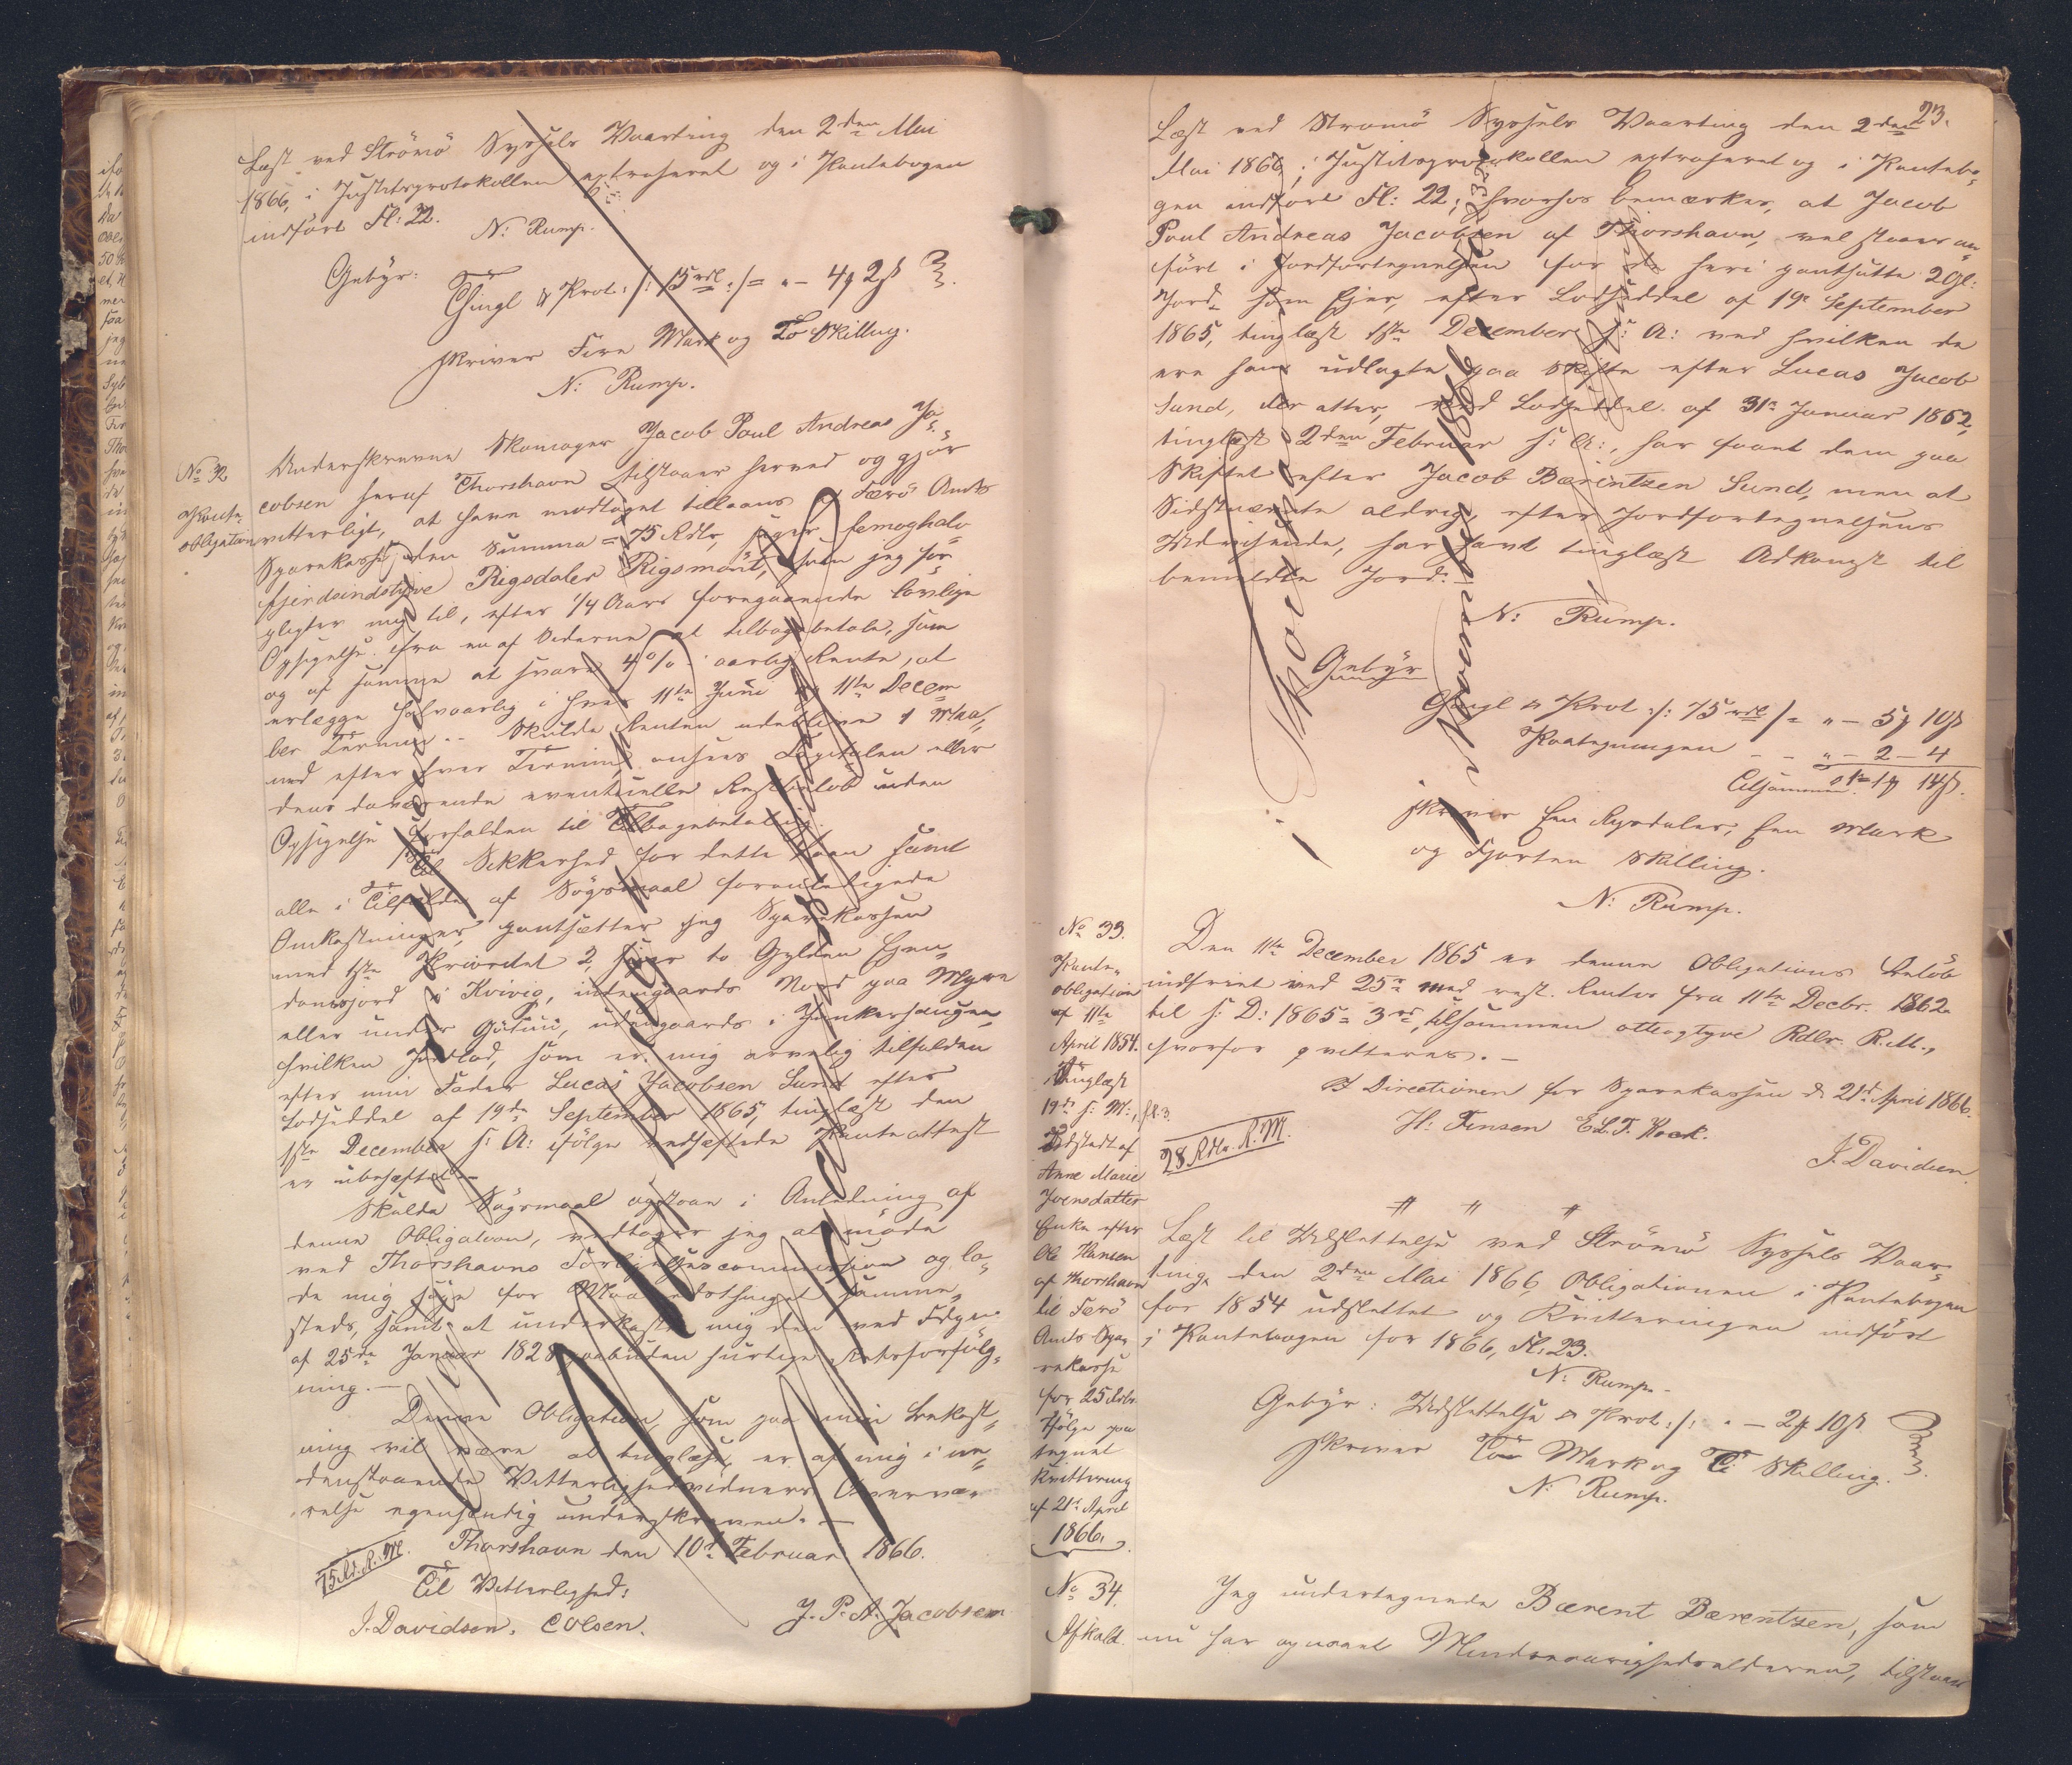 Læst ved Strömö Syssels Vaarting den 2den Mai
1866, i Justitsprotokollen extraheret og i Pantebogen
indført Fl: 22.
N: Rump.
Gebyr:
Thingl & Prot: /: 15 rdl :/ = " - 4 2 s
skriver Fire Mark og To Skilling.
N: Rump.
No 32
Pante-
obligation
Underskrevne Skomager Jacob Poul Andreas Ja-
cobsen heraf Thorshavn tilstaaer herved og gjør
vitterligt, at have modtaget tillaans af Færö Amts
Sparekasse den Summa = 75 Rdlr, siger femoghalv-
fjerdsindstyve Rigsdaler Rigsmönt, som jeg for-
pligter mig til, efter 1/4 Aars foregaaende lovlige
Opsigelse fra en af Siderne at tilbagebetale, samt
og af samme at svare 4 % i aarlig Rente, at
erlægge halvaarlig i hver 11te Juni og 11te Decem-
ber Termin. - Skulde Renten udeblive 1 Maa-
ned efter hver Termin, ansees Capitalen eller
dens daværende eventuelle Restbeløb uden
Opsigelse forfalden til Tilbagebetaling.
Til Sikkerhed for dette Laan samt
alle i Tilfælde af Søgsmaal foranledigede
Omkostninger pantsætter jeg Sparekassen
med 1ste Prioritet 2, siger to Gylden Eien-
domsjord i Kvivig, indengaards Nord paa Myre
eller under udengaards i Junkershaugen,
hvilken Jordlod, som er mig arvelig tilfalden
efter min Fader Lucas Jacobsen Sund efter
Lodseddel af 19de September 1865, tinglæst den
1ste December s: A: ifølge vedhæftede Panteattest
er ubehæftet. -
Skulde Søgsmaal opstaae i Anledning af
denne Obligation, vedtager jeg at møde
ved Thorshavns Forligelsescommission og la-
de mig søge for samme-
steds, samt at underkaste mig den ved Fdgn
af 25de Januar 1828 paabudne hurtige Retsforfølg-
ning. -
Denne Obligation, som paa min Bekost-
ning vil være at tinglæse, er af mig i ne-
denstaaende Vitterlighedsvidners Overvæ-
relse egenhændig underskreven. -
Thorshavn den 10d Februar 1866.
75 Rd. R. M.
Til Vitterlighed:
J. Davidsen. C Olsen.
J. P. A. Jacobsen
23.
Læst ved Stromö Syssels Vaarting den 2den
Mai 1866, i Justitsprotokollen extraheret og i Pantebo-
gen indført Fl: 22; hvorhos bemærkes, at Jacob
Poul Andreas Jacobsen af Thorshavn, vel staaer an-
ført i Jordfortegnelsen for de heri pantsatte 2 Gl:
Jord som Ejer, efter Lodseddel af 19de September
1865, tinglæst 1ste December s: A: ved hvilken de
ere ham udlagte paa Skifte efter Lucas Jacob
Sund, der atter, ved Lodseddel af 31te Januar 1862,
tinglæst 2den Februar s: A:, har faaet dem paa
Skiftet efter Jacob Bærintzen Sund, men at
Sidstnævnte aldrig, efter Jordfortegnelsens
Udvisende, har havt tinglæst Adkomst til
bemeldte Jord.
N: Rump.
Gebyr
Thingl & Prot :/: 75 rdl /= " - 5 10 s
Paategningen - - " - 2 - 4
Tilsammen 1 - 1 14 s.
skriver Een Rigsdaler, Een Mark
og Fjorten Skilling.
N: Rump.
No 33.
Pante-
obligation
af 11te
April 1854.
Tinglæst
19de s: M:, fl. 3.
Udstedt af
Anne Marie
Joensdatter
Enke efter
Ole Hansen
af Thorshavn
til Færö
Amts Spa-
rekasse
for 25 Rdlr.
Ifølge paa-
tegnet
Kvittering
af 21de April
1866.
Den 11te December 1865 er denne Obligations Beløb
indfriet med 25 rd med rest. Renter fra 11te Decbr. 1862
til s: D: 1865 = 3 rd, tilsammen otteogtyve Rdlr. R. M.,
hvorfor qvitteres. -
I Directionen for Sparekassen d. 21de April 1866.
28 Rdlr. R. M.
H: Finsen E. L. T. Kock.
J. Davidsen
Læst til Udslettelse ved Strömö Syssels Vaar-
ting den 2den Mai 1866, Obligationen i Pantebogen
for 1854 udslettet og Kvitteringen indført
i Pantebogen for 1866, Fl: 23.
N: Rump.
Gebyr: Udslettelse & Prot: /: " - 2 10 s
skriver To Mark og Ti Skilling.
N: Rump.
No 34.
Afkald.
Jeg undertegnede Bærent Bærentzen, som
nu har opnaaet Mindreaarighedsalderen, tilstaaer